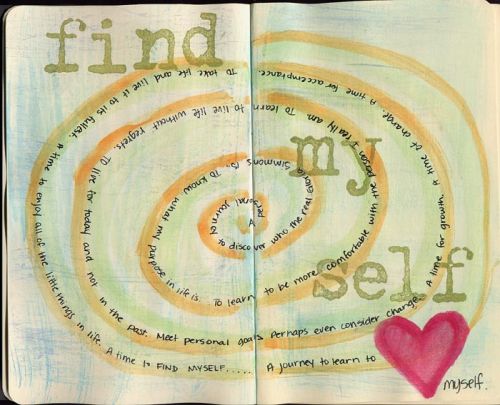 find
my
self
A personal journey to discover who the real Simmons is. To know what my purpose in life is. To learn to be more comfortable with the person I really am. To learn to live life without regrets. To live for today and not in the past. Meet personal goals. Perhaps even consider change. A time for growth. A time of change. A time for acceptance. To take life and live it to its fullest. A time to enjoy all of the little things in life. A time to FIND MYSELF..... A journey to learn to
myself.